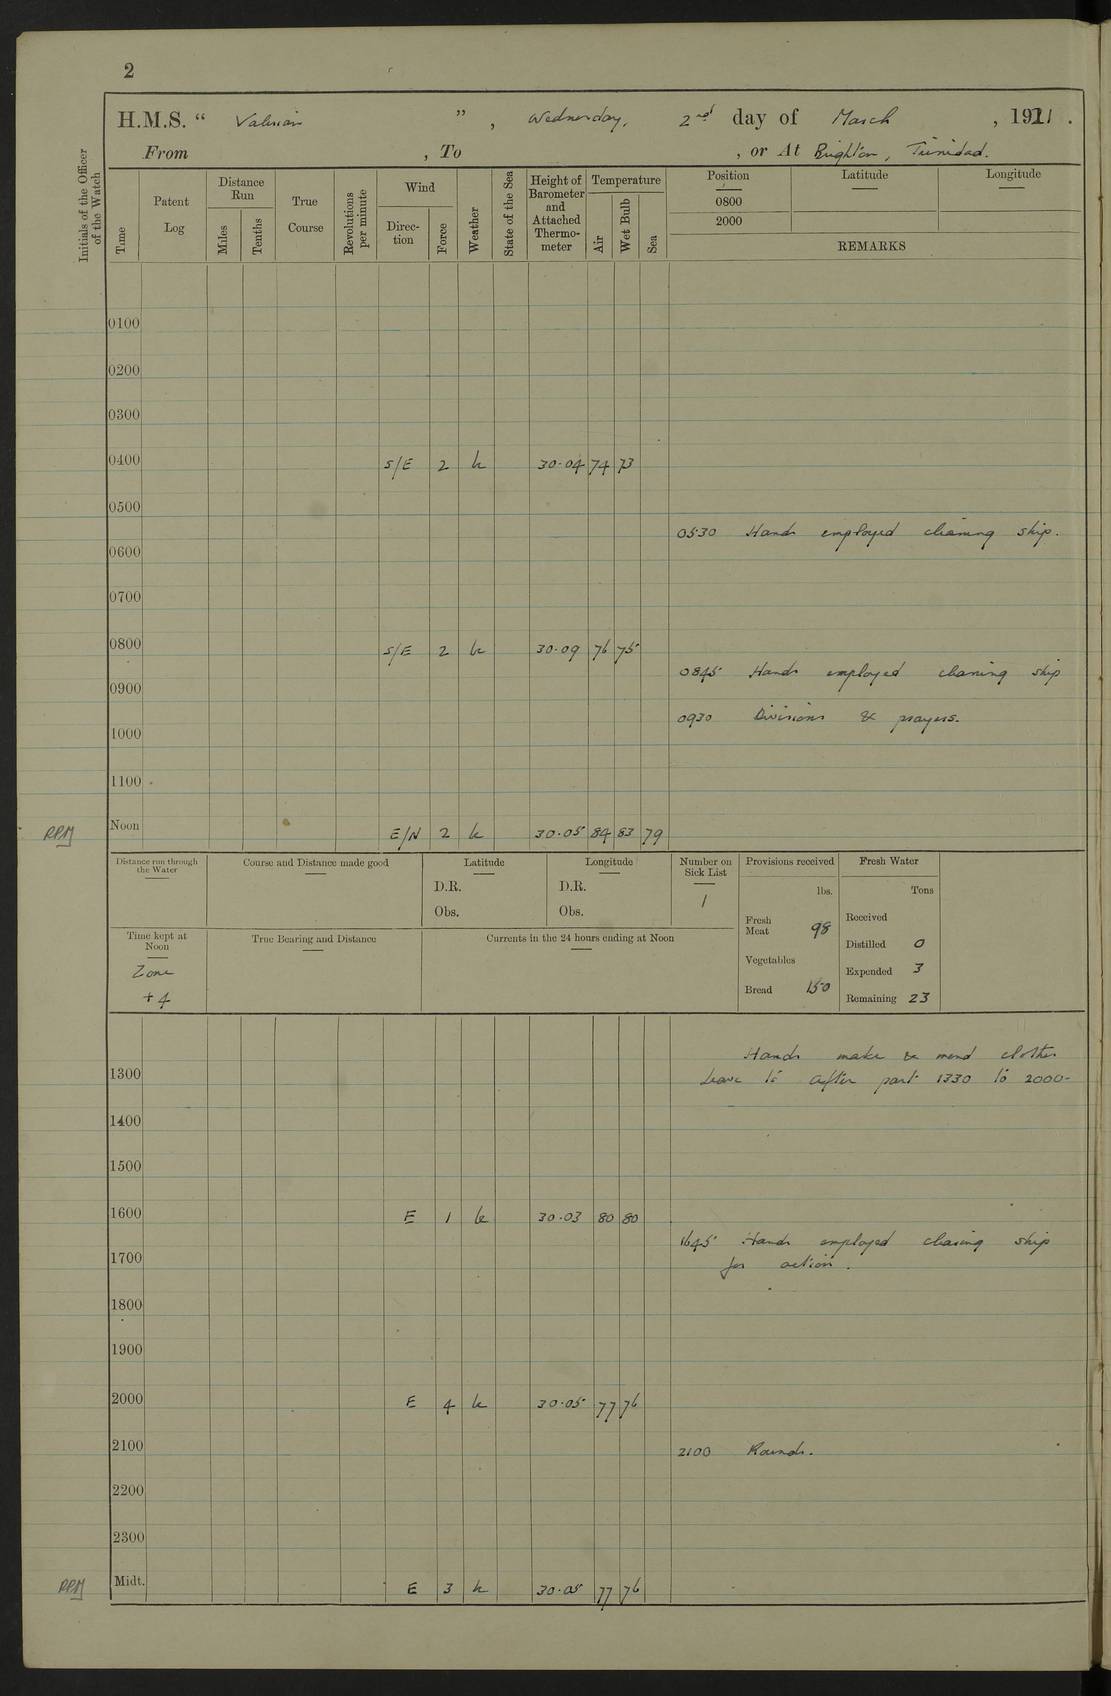 2
H.M.S. “ Valerian ” , Wednesday, 2nd day of March , 1921 .
From , To , or At Brighton, Trinidad.
Initials of the Officer of the Watch
Time
Patent Log
Distance Run
Miles
Tenths
True Course
Revolutions per minute
Wind
Direction
Force
Weather
State of the Sea
Height of Barometer and Attached Thermometer
Temperature
Air
Wet Bulb
Sea
Position
0800
2000
Latitude
Longitude
REMARKS
0100
0200
0300
0400 S/E 2 bc 30.04 74 73
0500
0530 Hands employed cleaning ship.
0600
0700
0800 S/E 2 bc 30.09 76 75
0845 Hands employed cleaning ship
0900
0930 Divisions & prayers.
1000
1100
RPM Noon E/N 2 bc 30.05 84 83 79
Distance run through the Water
Course and Distance made good
Latitude
D.R.
Obs.
Longitude
D.R.
Obs.
Number on Sick List
1
Provisions received
lbs.
Fresh Meat 98
Vegetables
Bread 150
Fresh Water
Tons
Received
Distilled 0
Expended 3
Remaining 23
Time kept at Noon
Zone
+4
True Bearing and Distance
Currents in the 24 hours ending at Noon
Hands make & mend clothes
1300 Leave to after part 1330 to 2000-
1400
1500
1600 E 1 bc 30.03 80 80
1645 Hands employed clearing ship
1700 for action.
1800
1900
2000 E 4 bc 30.05 77 76
2100 2100 Rounds.
2200
2300
RPM Midt. E 3 bc 30.05 77 76